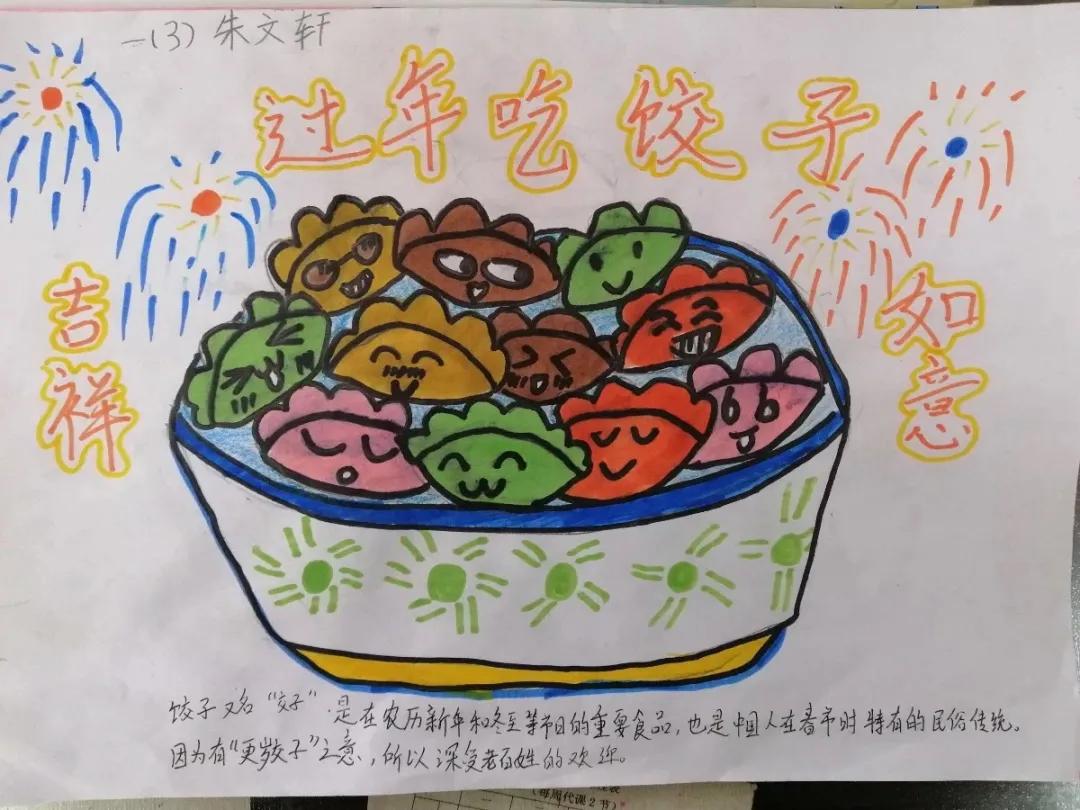 一(3) 朱文轩
过年吃饺子
吉祥
如意
饺子又名“交子”是在农历新年和冬至等节日的重要食品,也是中国人在春节时特有的民俗传统。
因为有“更岁交子”之意,所以深受老百姓的欢迎。
(每周代课2节)